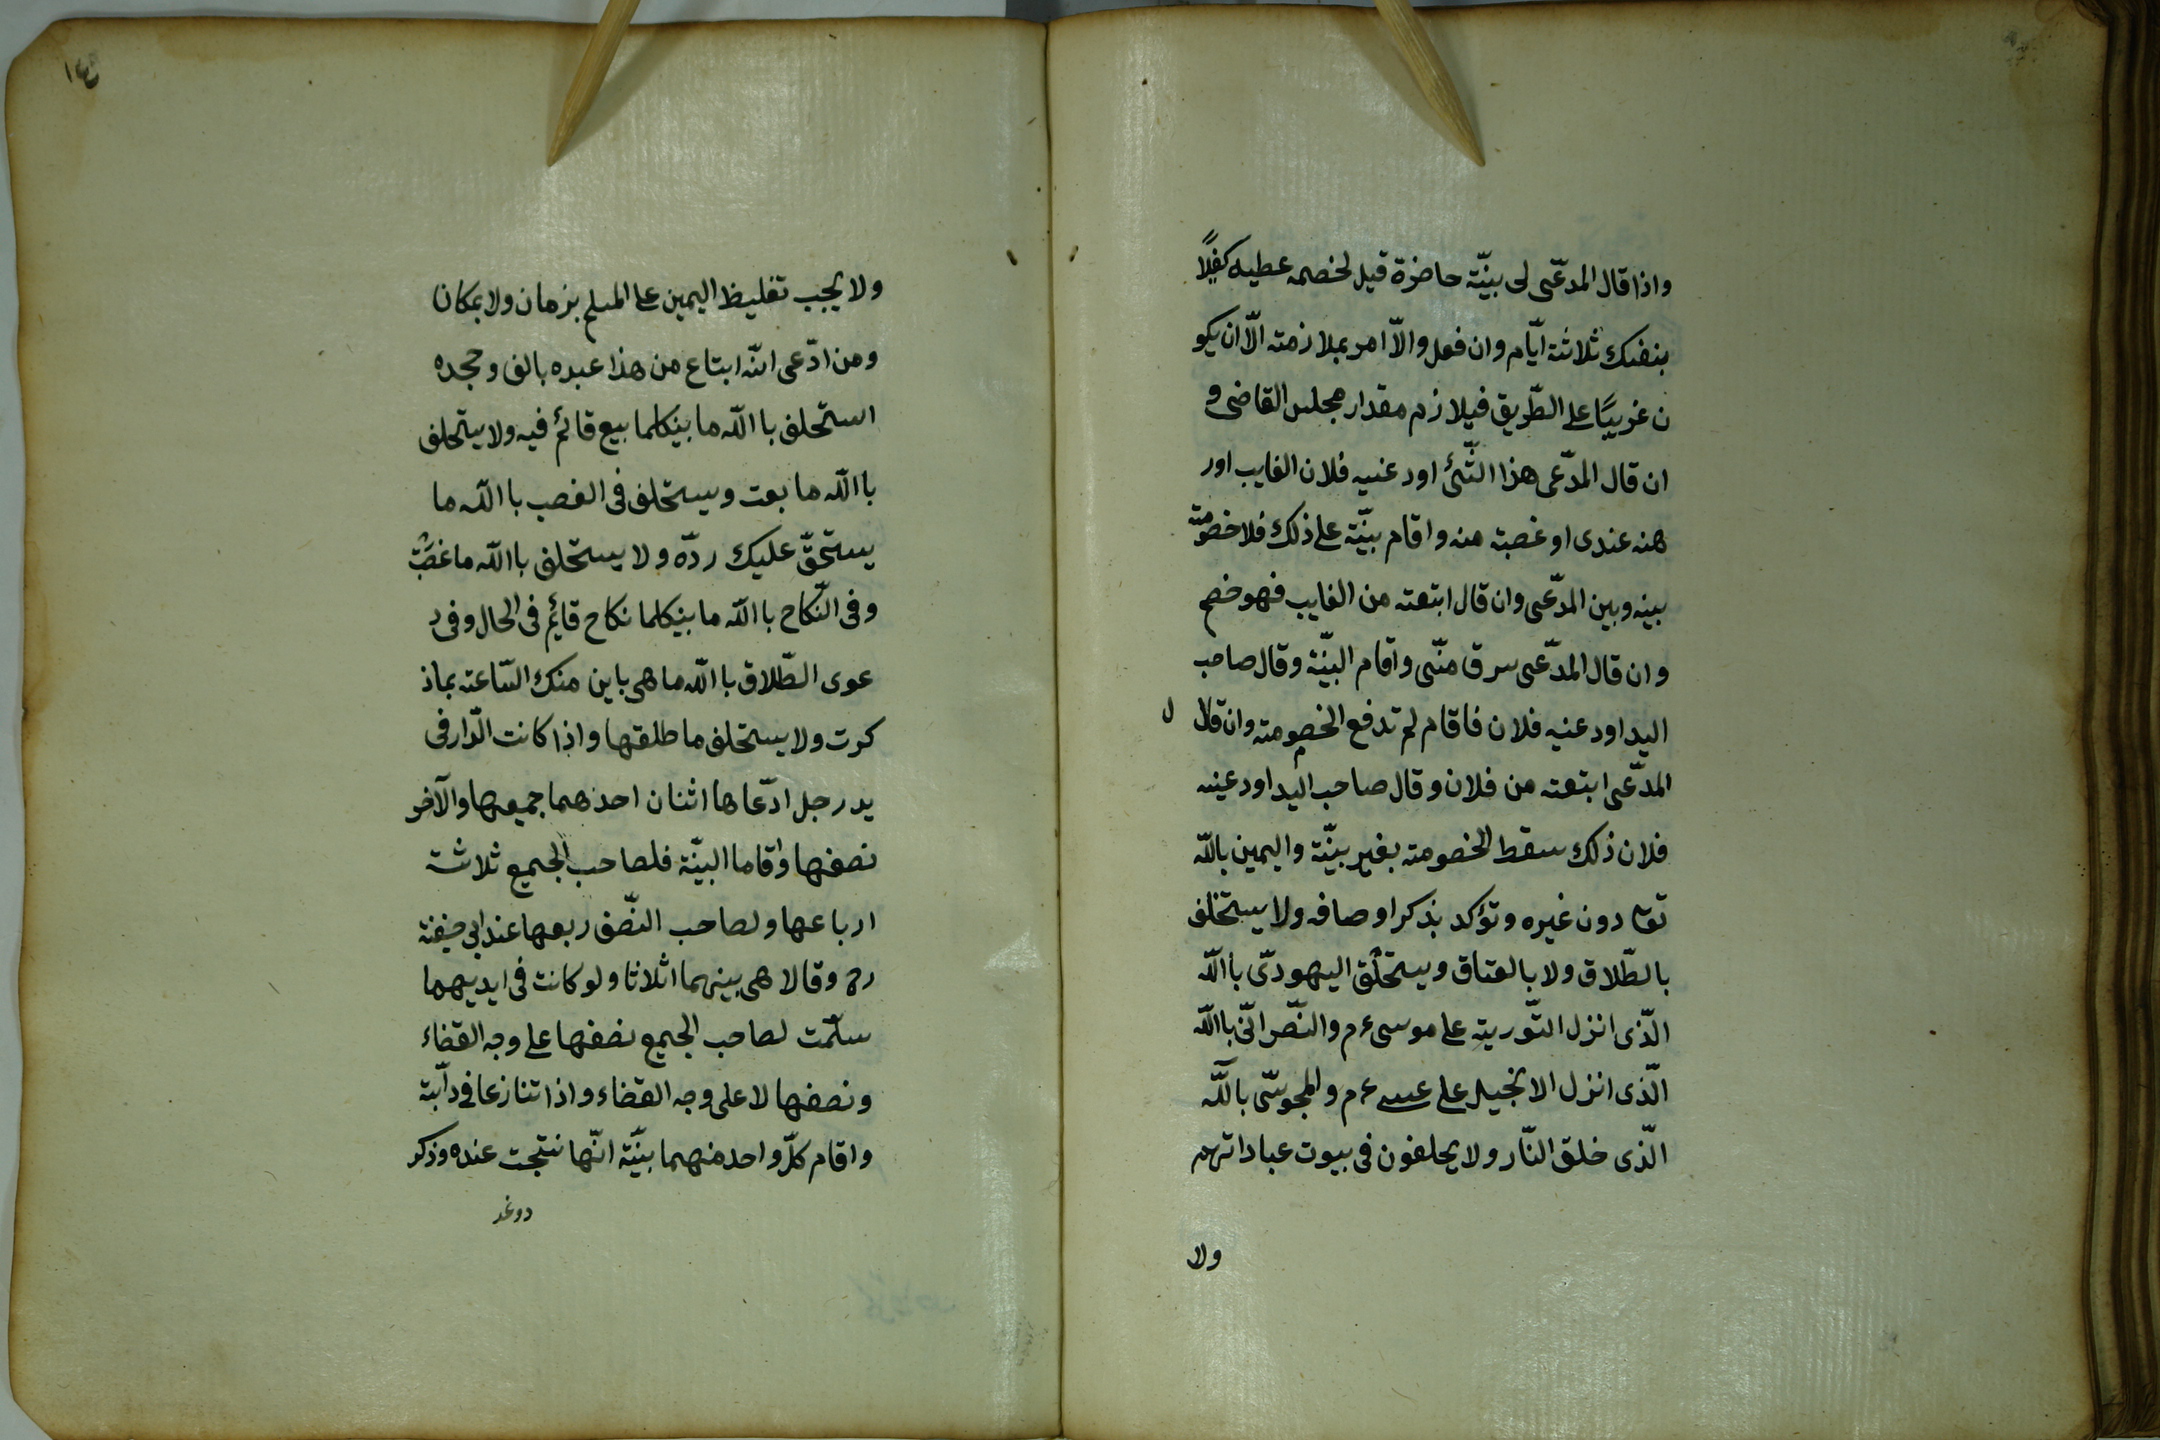 واذا قال المدّعى لى بيّنة حاضرة قيل لخصمه عطيه كفيلاً
بنفسك ثلاثة ايّام وان فعل والّا امر بملازمته الّا ان يكو
ن غريبًا على الطّريق فيلازم مقدار مجلس القاضى و
ان قال المدّعى هذا الشّئ اودعنيه فلان الغايب اور
هنه عندى او غصبته منه واقام بيّنة على ذلك فلا خصومة
بينه وبين المدّعى وان قال ابتعته من الغايب فهو خصم
وان قال المدّعى سرق منّى واقام البيّنة وقال صاحب
اليد اودعنيه فلان فاقام لم تدفع الخصومته وان قال
ل
المدّعى ابتعته من فلان وقال صاحب اليد اودعينه
فلان ذلك سقط الخصومته بغير بيّنة واليمين باللّه
تعا دون غيره وتؤكد بذكر اوصافه ولا يستخلف
بالطّلاق ولا بالعتاق ويستحلّق اليهودىّ با اللّه
الّذى انزل التّورية على موسى ءم والنّصرانّى با اللّه
الّذى انزل الانجيل على عيسى ءم والمجوسّى باللّه
الّذى خلق النّار ولا يحلفون فى بيوت عباداتهم
ولا
١٤٥
ولا يجب تغليظ اليمين على المسلم بزمان ولا بمكان
ومن ادّعى انّه ابتاع من هذا عبده بالف وجحده
استحلف با اللّه ما بينكما بيع قائم فيه ولا يستحلف
با اللّه ما بعت ويستحلف فى الغصب با اللّه ما
يستحقّ عليك ردّه ولا يستحلف با اللّه ما غصبت
وفى النّكاح با اللّه ما بينكما نكاح قايم فى الحال وفى د
عوى الطّلاق با اللّه ما هى باين منك السّاعته بماذ
كرت ولا يستحلف ما طلقها واذا كانت الدّار فى
يد رجل ادّعاها اثنان احدهما جميعها والآخر
نصفها واقاما البيّنة فلصاحب الجميع ثلاثت
ارباعها ولصاحب النّصف ربعها عند ابى حنيفة
رح وقالا هى بينهما اثلاثا ولو كانت فى ايديهما
سلّمت لصاحب الجميع نصفها على وجه القضاء
ونصفها لا على وجه القضاء واذا تنازعا فى دآبّة
واقام كلّ واحد منهما بيّنة انّها نتجت عنده وذكر
دوغد